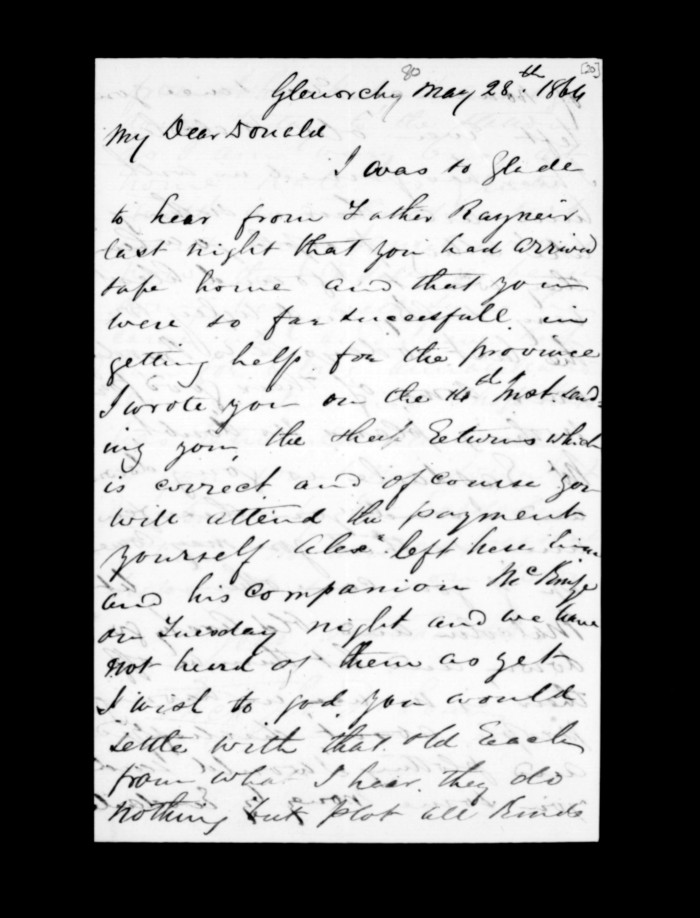 80 [20]
Glenorchy May 28th. 1864
My Dear Donald
I was to glade
to hear from Father Rayneir
last night that you had arrived
safe home and that you
were so far successfull in
getting help for the province
I wrote you on the inst. send-
ing you, the sheep Returns which
is correct and of course you
will attend the payment
yourself Alexr left here
and his companion
on Tuesday night and we have
not heard of them as yet
I wish to god you would
settle with that old
from what I hear they do
nothing but plot all kinds